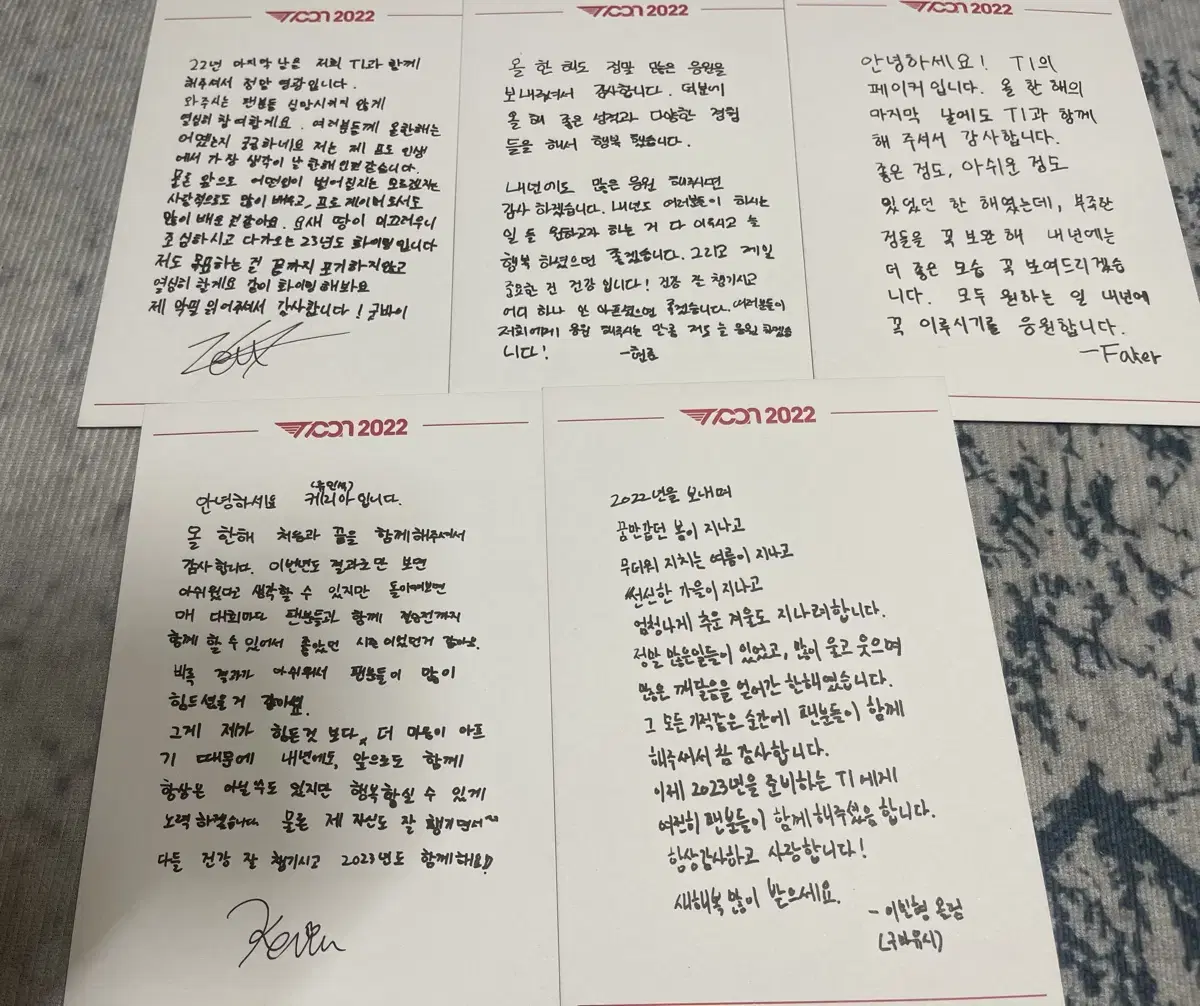 T1CON 2022
22년 마지막 날은 저희 T1과 함께
해주셔서 정말 영광입니다.
와주시는 팬분들 실망시키지 않게
열심히 참여할게요. 여러분들께 올한해는
어땠는지 궁금하네요 저는 제 프로 인생
에서 가장 생각이 날 한해 인것 같습니다.
물론 앞으로 어떤일이 벌어질지는 모르겠지만
사람적으로도 많이 배우고, 프로게이머로서도
많이 배운 것같아요. 요새 땅이 미끄러우니
조심하시고 다가오는 23년도 화이팅 입니다
저도 목표하는 걸 끝까지 포기하지않고
열심히 할게요 같이 화이팅 해봐요
제 악필 읽어주셔서 감사합니다! 굳바이
Zeus
T1CON 2022
올 한 해도 정말 많은 응원을
보내주셔서 감사합니다. 덕분에
올 해 좋은 성적과 다양한 경험
들을 해서 행복 했습니다.
내년에도 많은 응원 해주시면
감사 하겠습니다. 내년도 여러분들이 하시는
일 들 원하고자 하는 거 다 이루시고 늘
행복 하셨으면 좋겠습니다. 그리고 제일
중요한 건 건강 입니다! 건강 잘 챙기시고
어디 하나 안 아프셨으면 좋겠습니다. 여러분들이
저희에게 응원 해주시는 만큼 저도 늘 응원 하겠습
니다! -현준
T1CON 2022
안녕하세요! T1의
페이커입니다. 올 한 해의
마지막 날에도 T1과 함께
해 주셔서 감사합니다.
좋은 점도, 아쉬운 점도
있었던 한 해였는데, 부족한
점들을 꼭 보완해 내년에는
더 좋은 모습 꼭 보여드리겠습
니다. 모두 원하는 일 내년에
꼭 이루시기를 응원합니다.
-Faker
T1CON 2022
(류민석)
안녕하세요 케리아입니다.
올 한해 처음과 끝을 함께해주셔서
감사합니다. 이번년도 결과로만 보면
아쉬웠다고 생각할 수 있지만 돌이켜보면
매 대회마다 팬분들과 함께 결승전까지
함께 할 수 있어서 좋았던 시즌이었던거 같아요.
비록 결과가 아쉬워서 팬분들이 많이
힘드셨을 거 같아요.
그게 제가 힘든것 보다 더 마음이 아프
기 때문에 내년에도, 앞으로도 함께
항상은 아닐 수도 있지만 행복할실 수 있게
노력 하겠습니다. 물론 제 자신도 잘 챙기면서~
다들 건강 잘 챙기시고 2023년도 함께해요!!
Keria
T1CON 2022
2022년을 보내며
꿈만같던 봄이 지나고
무더위 지치는 여름이 지나고
선선한 가을이 지나고
엄청나게 추운 겨울도 지나려합니다.
정말 많은일들이 있었고, 많이 울고 웃으며
많은 깨달음을 얻어간 한해였습니다.
그 모든 기적같은 순간에 팬분들이 함께
해주셔서 참 감사합니다.
이제 2023년을 준비하는 T1에게
여전히 팬분들이 함께 해주셨음 합니다.
항상감사하고 사랑합니다!
새해복 많이 받으세요.
- 이민형 올림
(구마유시)